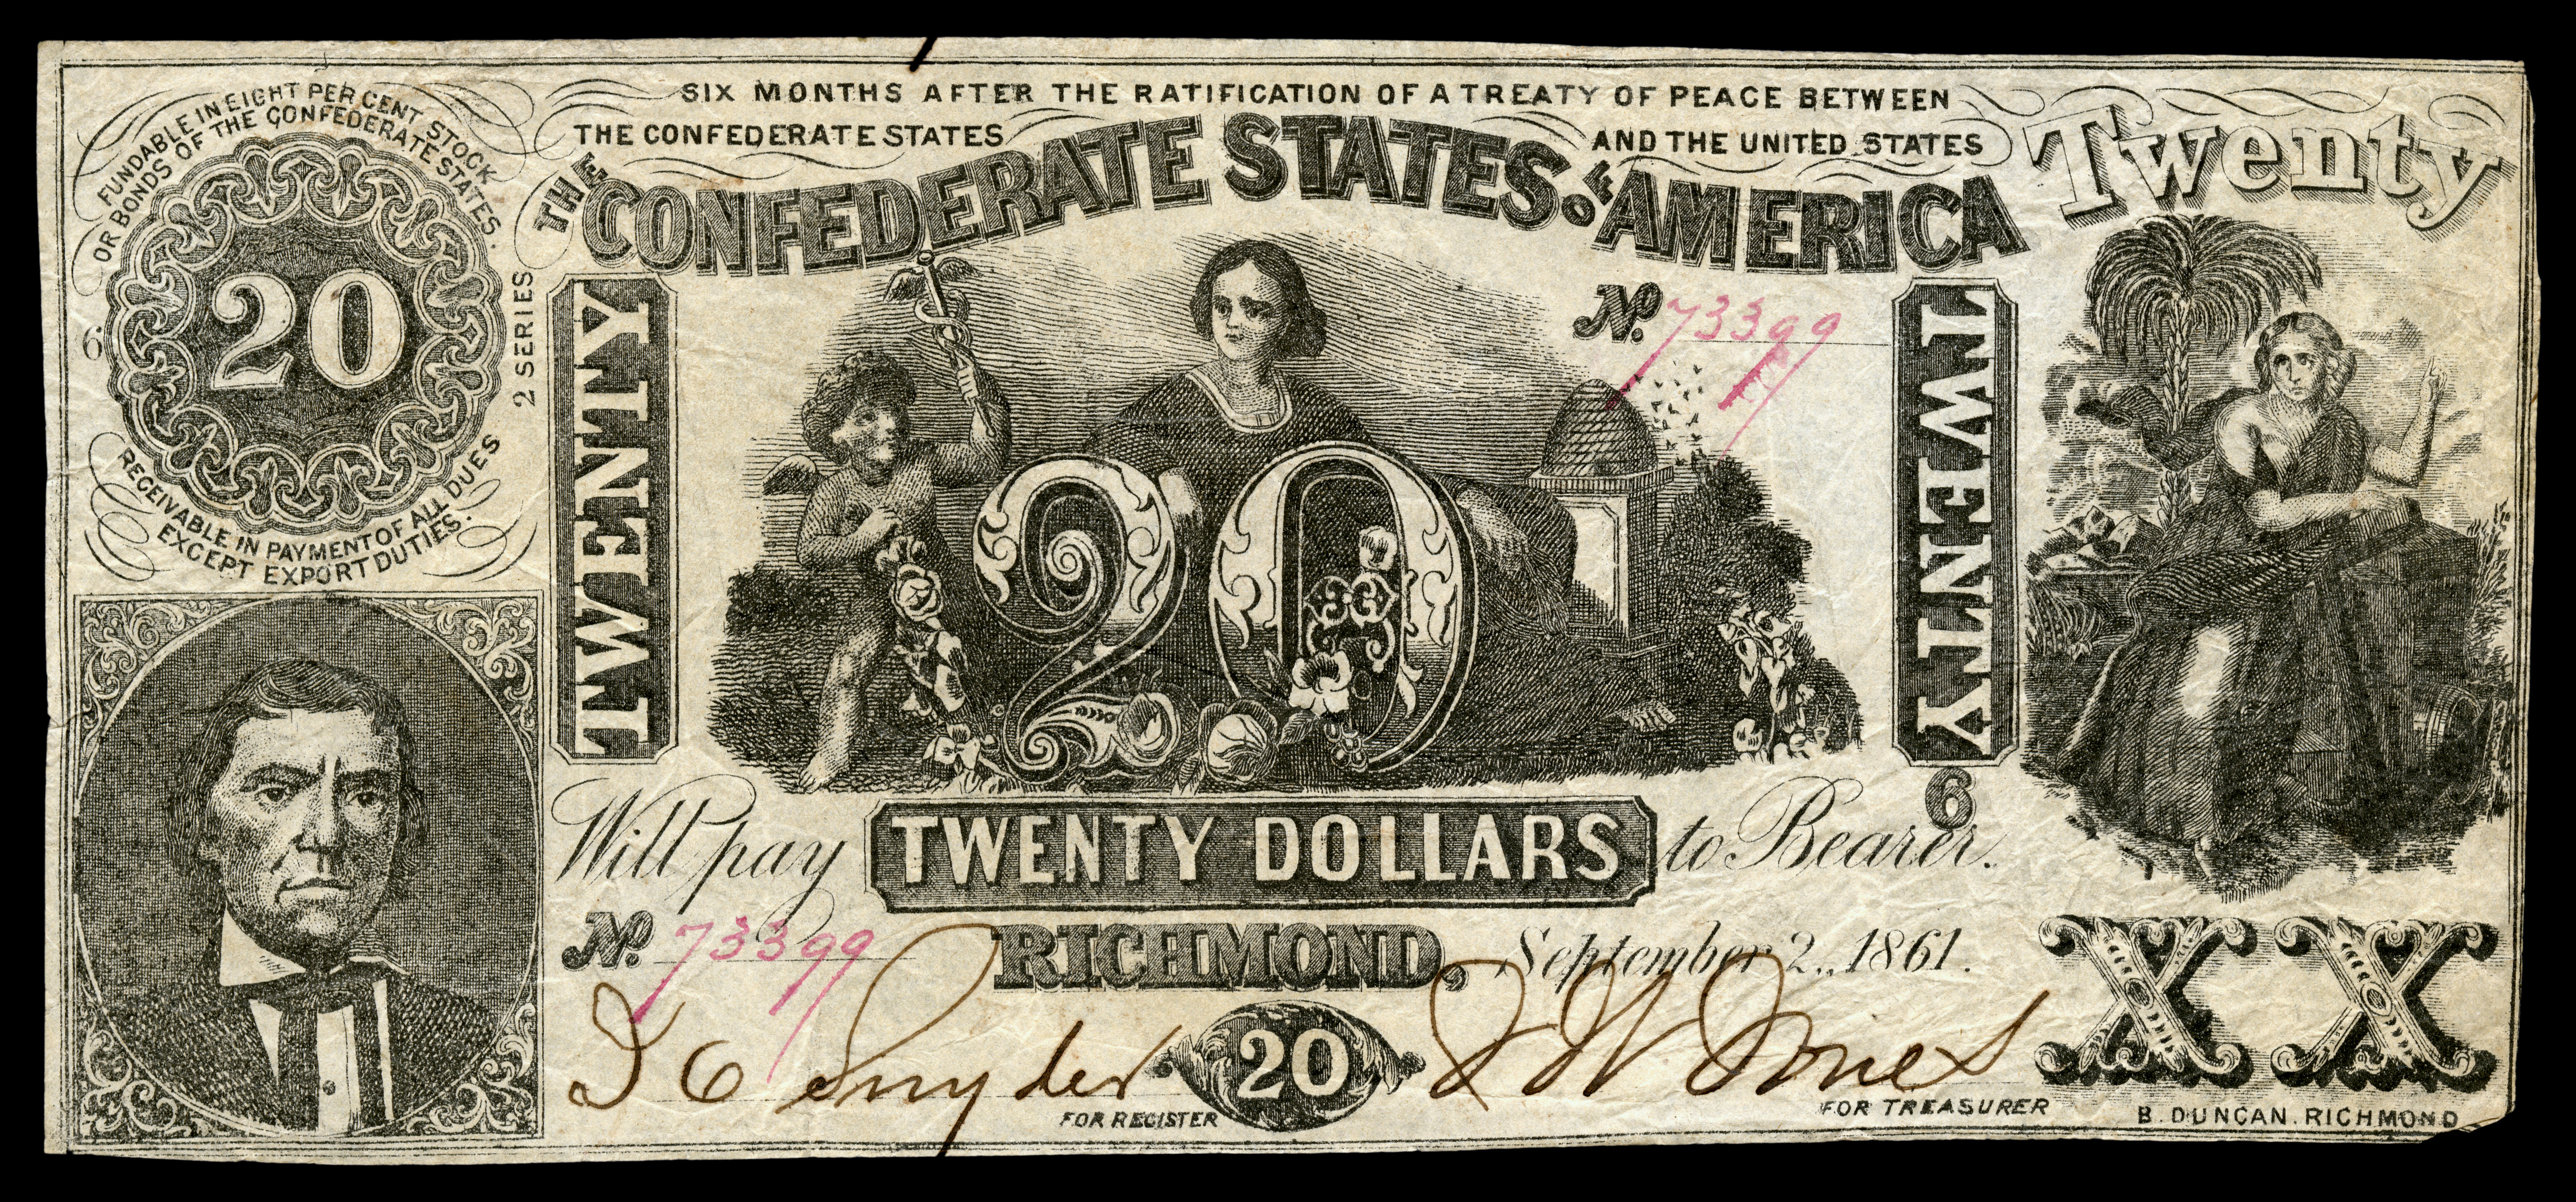 SIX MONTHS AFTER THE RATIFICATION OF A TREATY OF PEACE BETWEEN
THE CONFEDERATE STATES AND THE UNITED STATES
FUNDABLE IN EIGHT PER CENT STOCK
OR BONDS OF THE CONFEDERATE STATES.
20
6
2 SERIES
RECEIVABLE IN PAYMENT OF ALL DUES
EXCEPT EXPORT DUTIES.
THE CONFEDERATE STATES OF AMERICA
Twenty
TWENTY
No. 73399
20
TWENTY
6
Will pay TWENTY DOLLARS to Bearer.
No. 73399
RICHMOND, September 2, 1861.
Snyder
FOR REGISTER
20
J W Jones
FOR TREASURER
XX
B. DUNCAN. RICHMOND